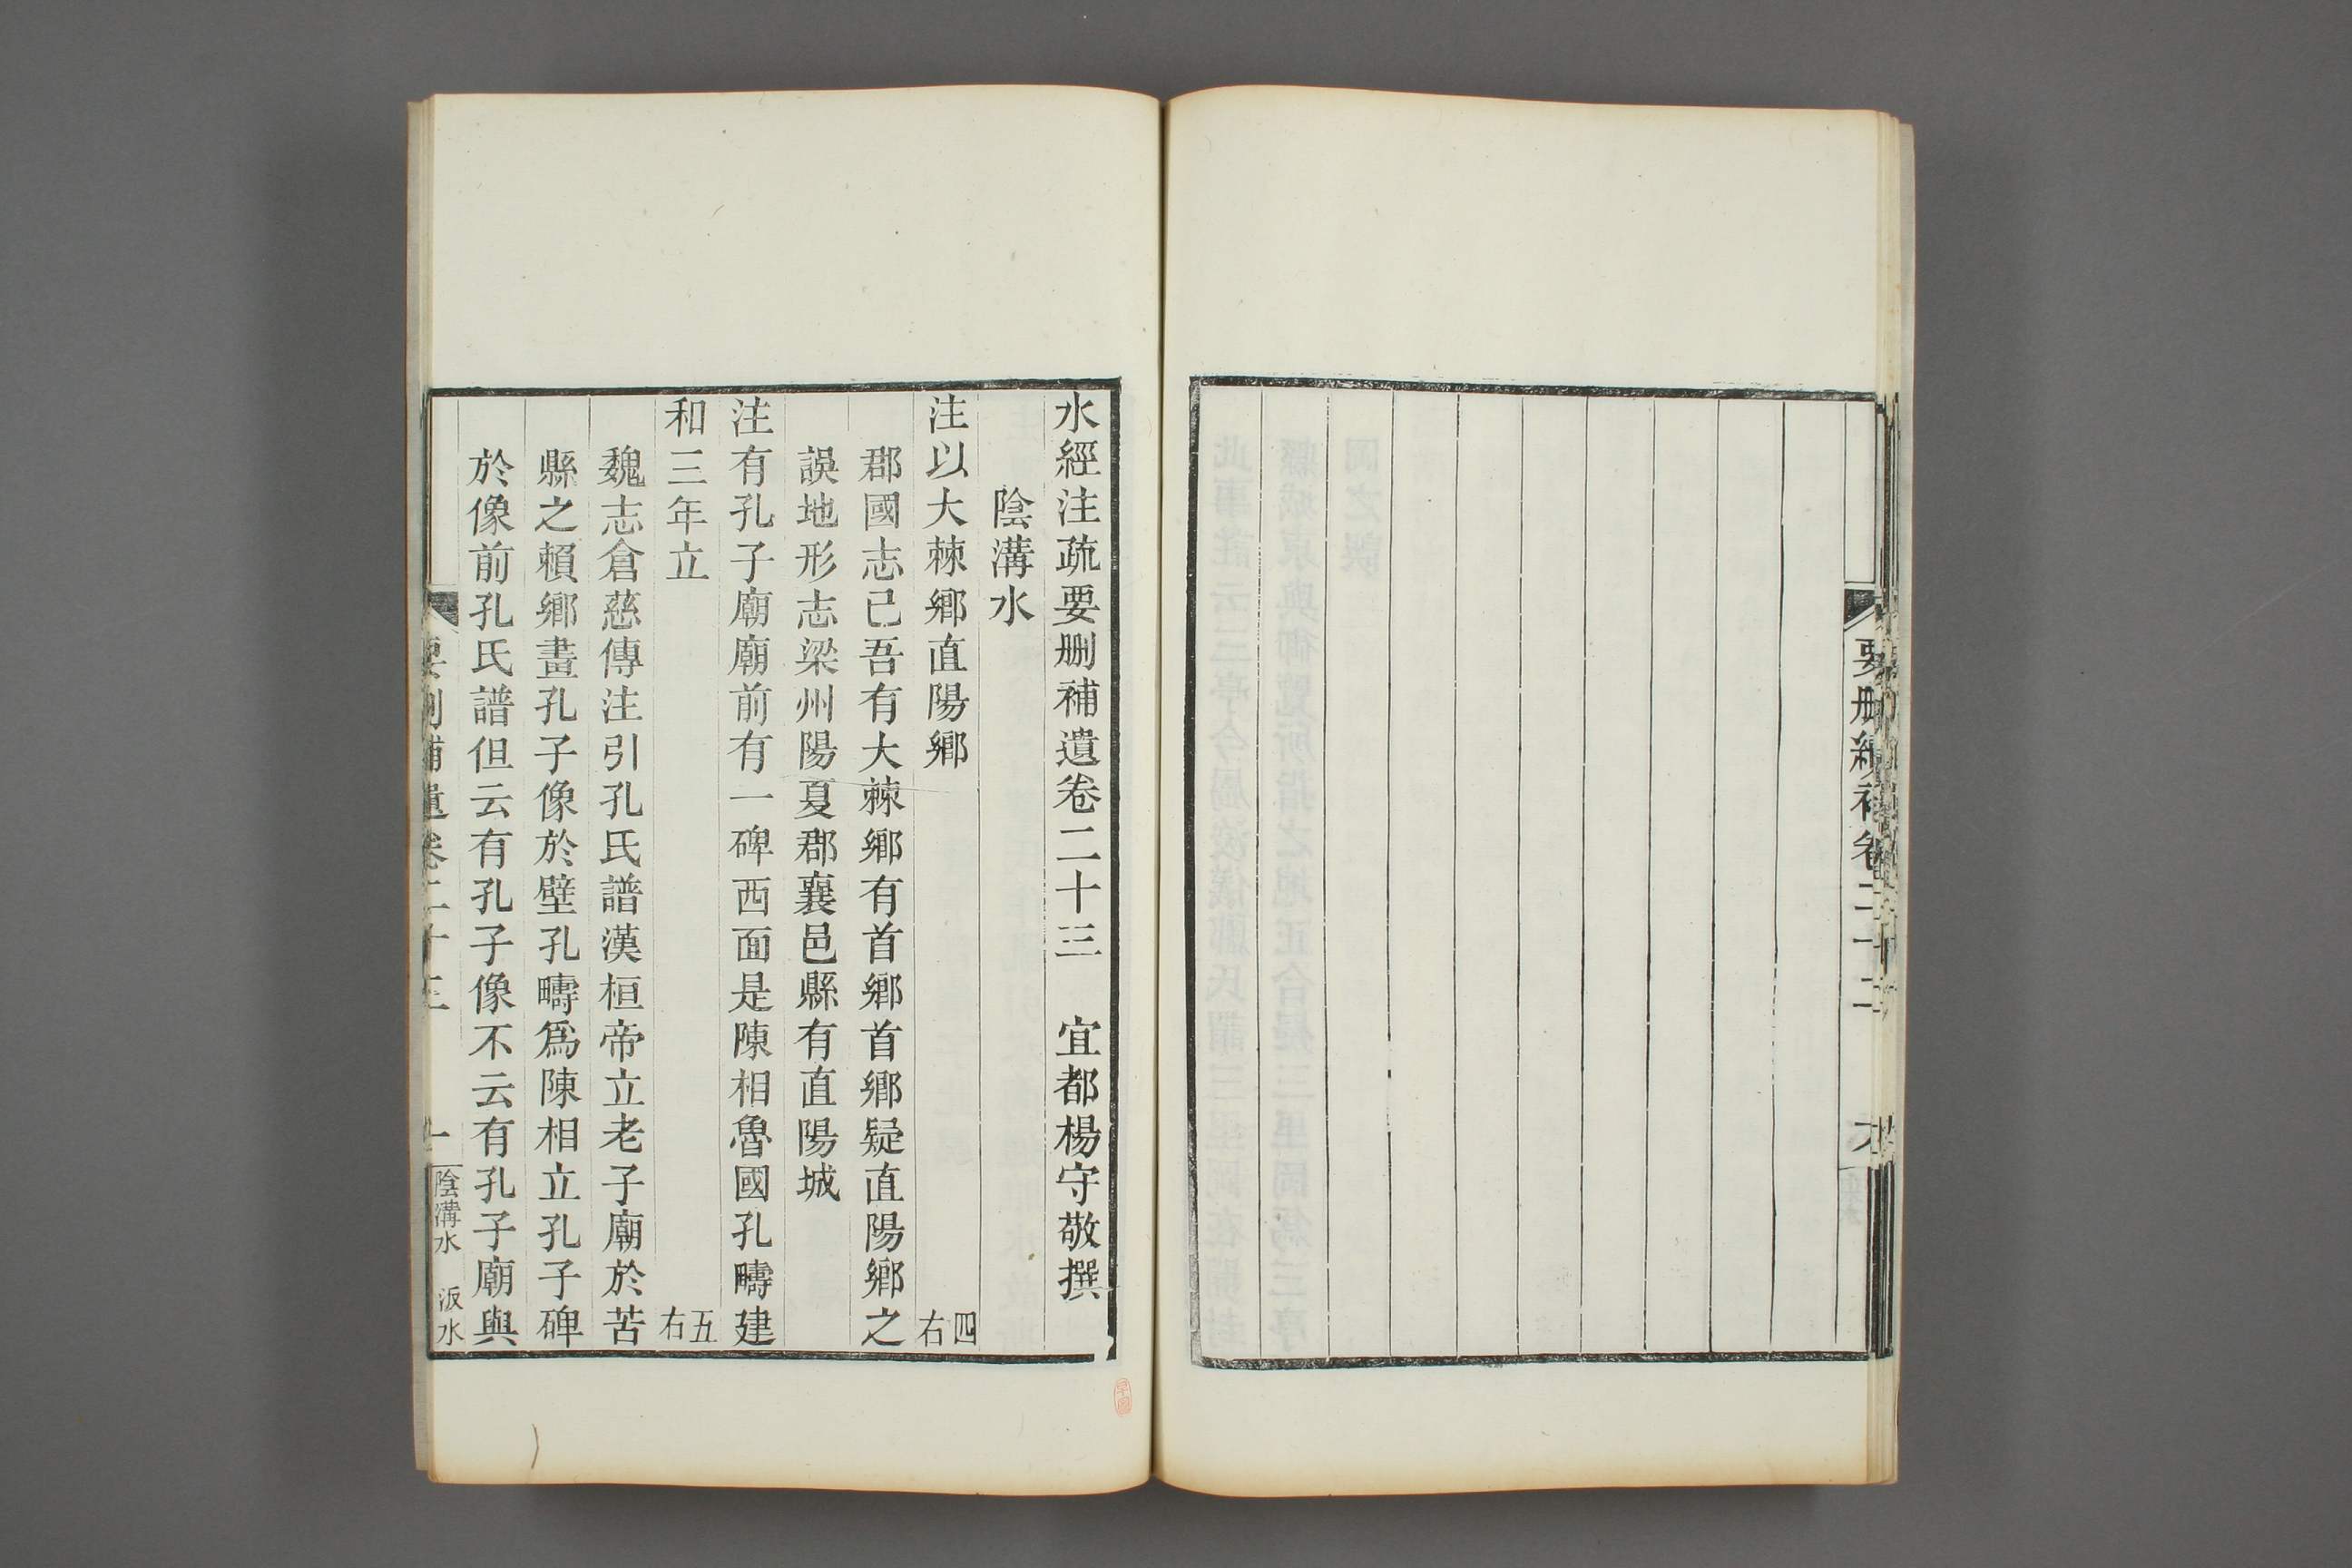 要删續補卷二十二
水經注疏要删補遺卷二十三 宜都楊守敬撰
陰溝水
注以大棘鄉直陽鄉 四右
郡國志己吾有大棘鄉有首鄉首鄉疑直陽鄉之
誤地形志梁州陽夏郡襄邑縣有直陽城
注有孔子廟廟前有一碑西面是陳相魯國孔疇建
和三年立 五右
魏志倉慈傳注引孔氏譜漢桓帝立老子廟於苦
縣之賴鄉畫孔子像於壁孔疇爲陳相立孔子碑
於像前孔氏譜但云有孔子像不云有孔子廟與
要删補遺卷二十三 一 陰溝水 汳水